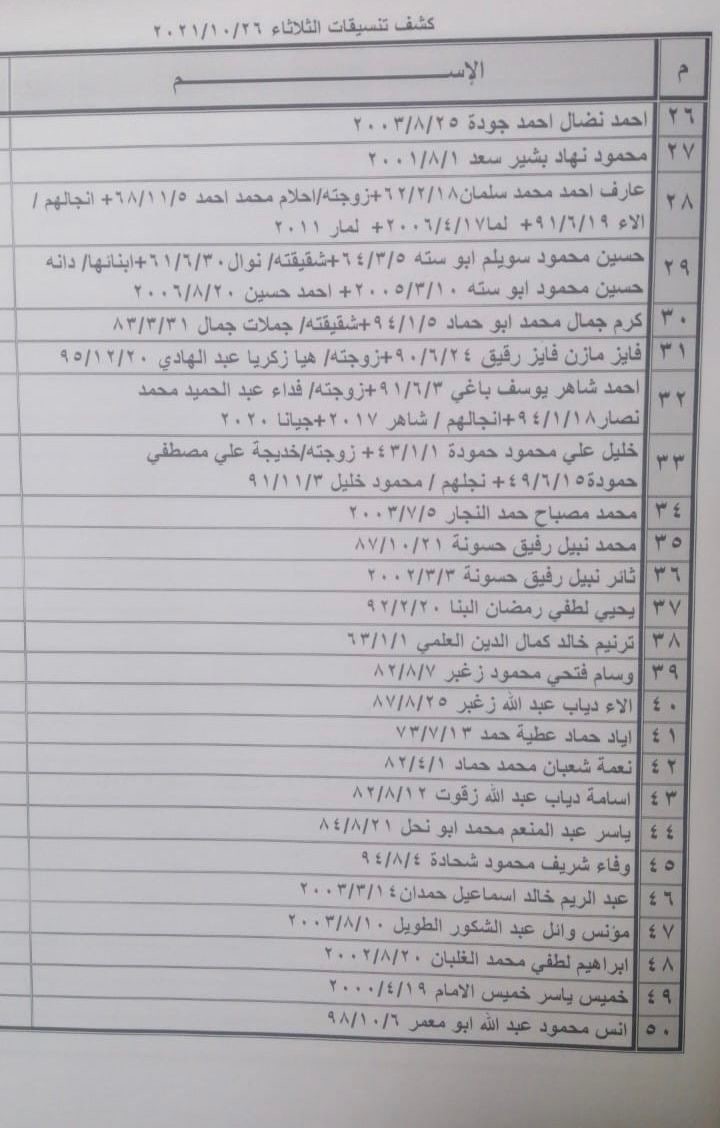 كشف تنسيقات الثلاثاء ٢٠٢١/١٠/٢٦
م الإســــــــــم
٢٦ احمد نضال احمد جودة ٢٠٠٣/٨/٢٥
٢٧ محمود نهاد بشير سعد ٢٠٠١/٨/١
٢٨ عارف احمد محمد سلمان٦٢/٢/١٨+زوجته/احلام محمد احمد ٦٨/١١/٥+ انجالهم /
الاء ٩١/٦/١٩+ لما٢٠٠٦/٤/١٧+ لمار ٢٠١١
٢٩ حسين محمود سويلم ابو سته ٦٤/٣/٥+شقيقته/ نوال٦١/٦/٣٠+ابنائها/ دانه
حسين محمود ابو سته ٢٠٠٥/٣/١٠+ احمد حسين ٢٠٠٦/٨/٢٠
٣٠ كرم جمال محمد ابو حماد ٩٤/١/٥+شقيقته/ جملات جمال ٨٣/٣/٣١
٣١ فايز مازن فايز رقيق ٩٠/٦/٢٤+زوجته/ هيا زكريا عبد الهادي ٩٥/١٢/٢٠
٣٢ احمد شاهر يوسف باغي ٩١/٦/٣+زوجته/ فداء عبد الحميد محمد
نصار٩٤/١/١٨+انجالهم / شاهر ٢٠١٧+جيانا ٢٠٢٠
٣٣ خليل علي محمود حمودة ٤٣/١/١+ زوجته/خديجة علي مصطفي
حمودة٤٩/٦/١٥+ نجلهم / محمود خليل ٩١/١١/٣
٣٤ محمد مصباح حمد النجار ٢٠٠٣/٧/٥
٣٥ محمد نبيل رفيق حسونة ٨٧/١٠/٢١
٣٦ ثائر نبيل رفيق حسونة ٢٠٠٢/٣/٣
٣٧ يحيي لطفي رمضان البنا ٩٢/٢/٢٠
٣٨ ترنيم خالد كمال الدين العلمي ٦٣/١/١
٣٩ وسام فتحي محمود زغبر ٨٢/٨/٧
٤٠ الاء دياب عبد الله زغبر ٨٧/٨/٢٥
٤١ اياد حماد عطية حمد ٧٣/٧/١٣
٤٢ نعمة شعبان محمد حماد ٨٢/٤/١
٤٣ اسامة دياب عبد الله زقوت ٨٢/٨/١٢
٤٤ ياسر عبد المنعم محمد ابو نحل ٨٤/٨/٢١
٤٥ وفاء شريف محمود شحادة ٩٤/٨/٤
٤٦ عبد الريم خالد اسماعيل حمدان٢٠٠٣/٣/١٤
٤٧ مؤنس وائل عبد الشكور الطويل ٢٠٠٣/٨/١٠
٤٨ ابراهيم لطفي محمد الغلبان ٢٠٠٢/٨/٢٠
٤٩ خميس ياسر خميس الامام ٢٠٠٠/٤/١٩
٥٠ انس محمود عبد الله ابو معمر ٩٨/١٠/٦